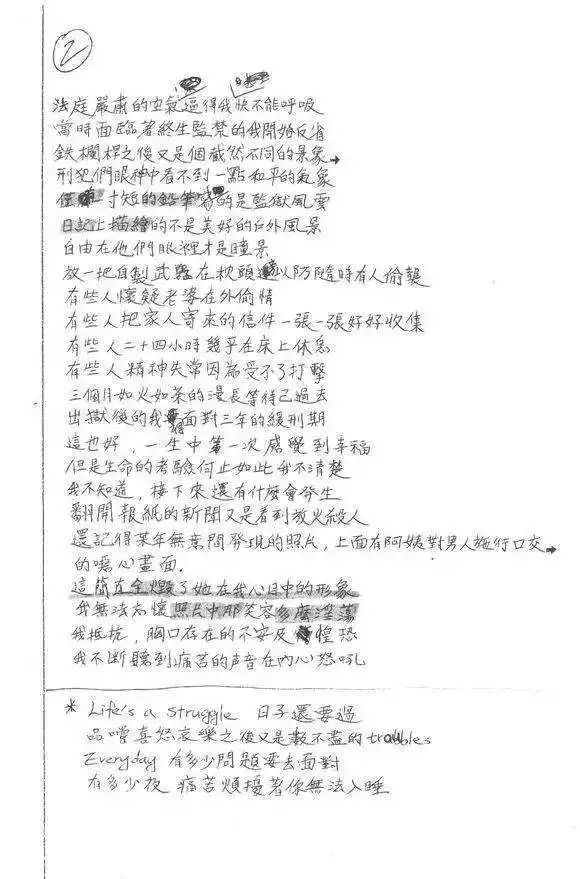 ②
法庭嚴肅的空氣逼得我快不能呼吸
當時面臨著終生監禁的我開始反省
鉄欄桿之後又是個截然不同的景象→
刑犯們眼神中看不到一點和平的氣象
寸短的鉛筆寫的是監獄風雲
日記上描繪的不是美好的台外風景
自由在他們眼裡才是瞳景
放一把自製武器在枕頭邊以防隨時有人偷襲
有些人懷疑老婆在外偷情
有些人把家人寄來的信件一張一張好好收集
有些人二十四小時幾乎在床上休息
有些人精神失常因為受不了打擊
三個月如火如荼的漫長等待已過去
出獄後的我得面對三年的緩刑期
這也好，一生中第一次感覺到幸福
但是生命的考驗何止如此我不清楚
我不知道，接下來還有什麼會發生
翻開報紙的新聞又是看到放火殺人
還記得某年無意間發現的照片，上面有阿姨對男人施行口交→
的噁心畫面.
這簡直全燬了她在我心目中的形象
我無法忘懷照片中那笑容多麼淫蕩
我抵抗，胸口存在的不安及惶恐
我不斷聽到痛苦的声音在內心怒吼
* Life's a struggle 日子還要過
品嚐喜怒哀樂之後又是數不盡的troubles
Everyday 有多少問題要去面對
有多少夜 痛苦煩擾著你無法入睡